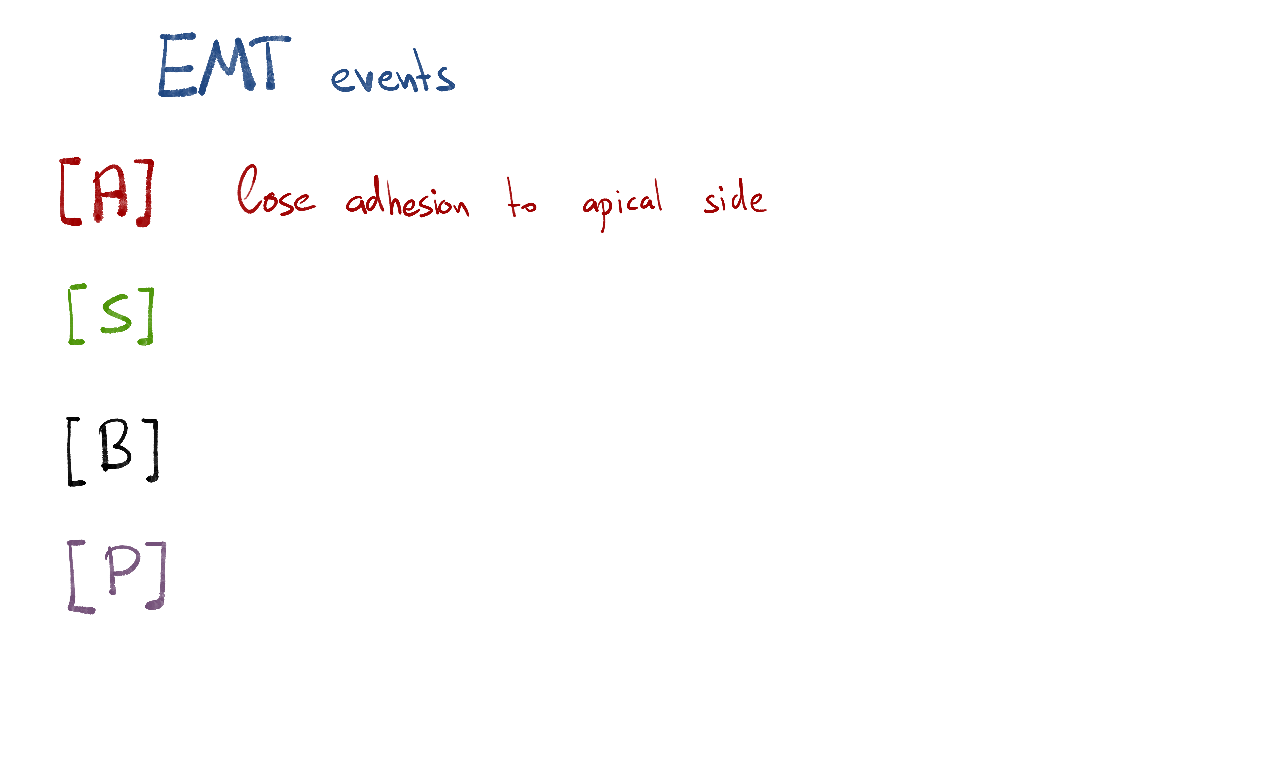 EMT events
[A] lose adhesion to apical side
[S]
[B]
[P]